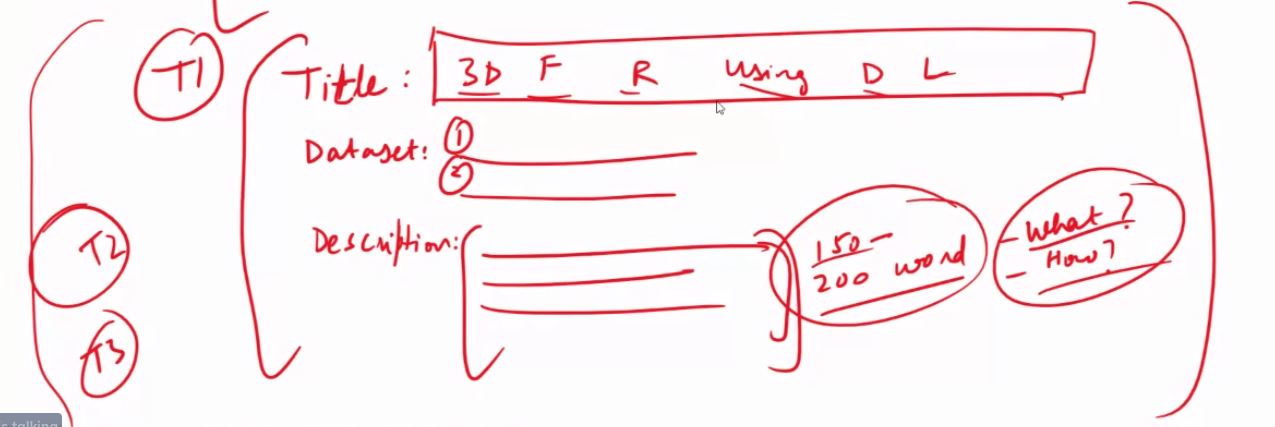 T1
Title: 3D F R using D L
Dataset: ①
②
Description:
150-
200 word
- What?
- How?
T2
T3
s talking